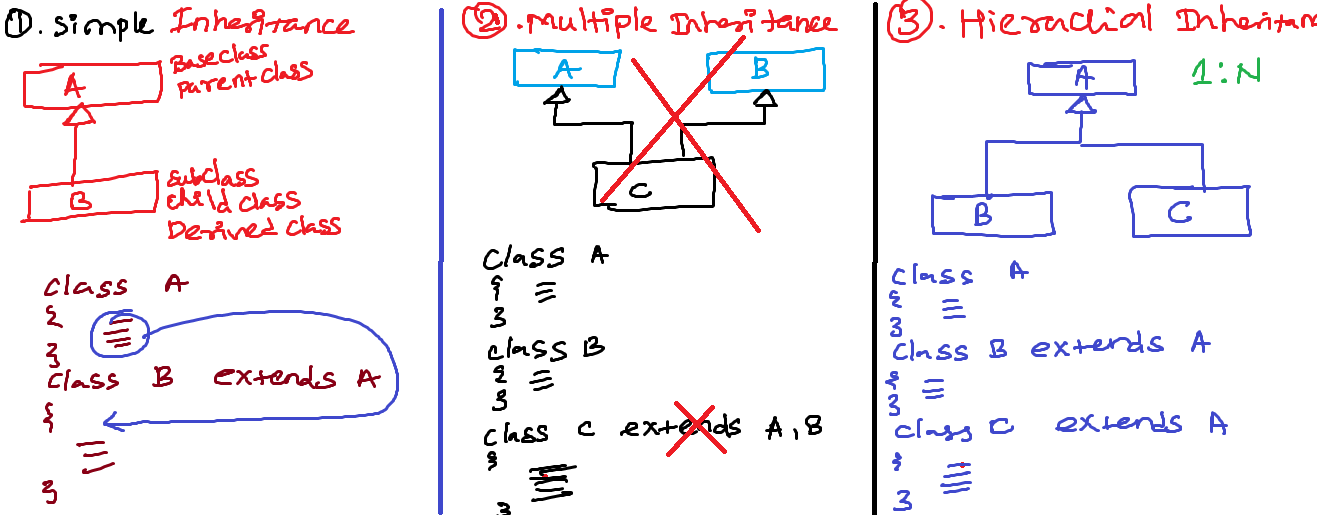 ①. Simple Inheritance
A
Base class
parent class
B
subclass
child class
Derived class
class A
{
}
class B extends A
{
}
②. Multiple Inheritance
A
B
C
class A
{
}
class B
{
}
class C extends A, B
{
}
③. Hieracial Inheritan
1:N
A
B
C
class A
{
}
class B extends A
{
}
class C extends A
{
}